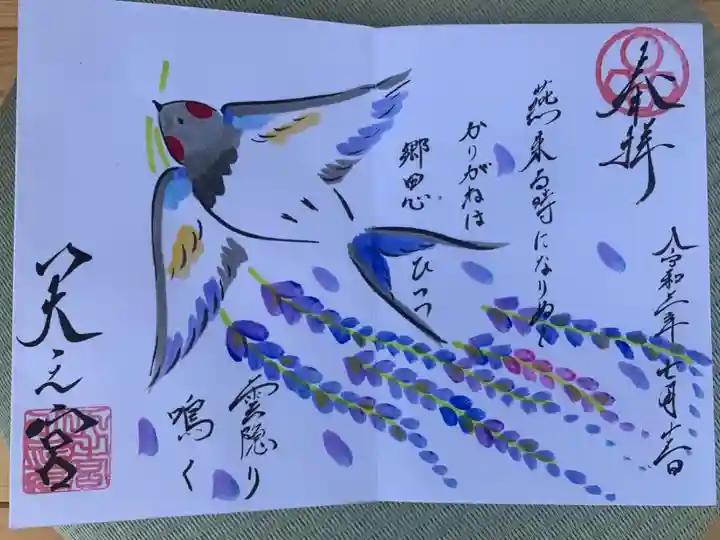 奉拝
令和三年七月吉日
燕来る時になりぬと
かりがねは
郷思ひつつ
雲隠り
鳴く
笑之宮